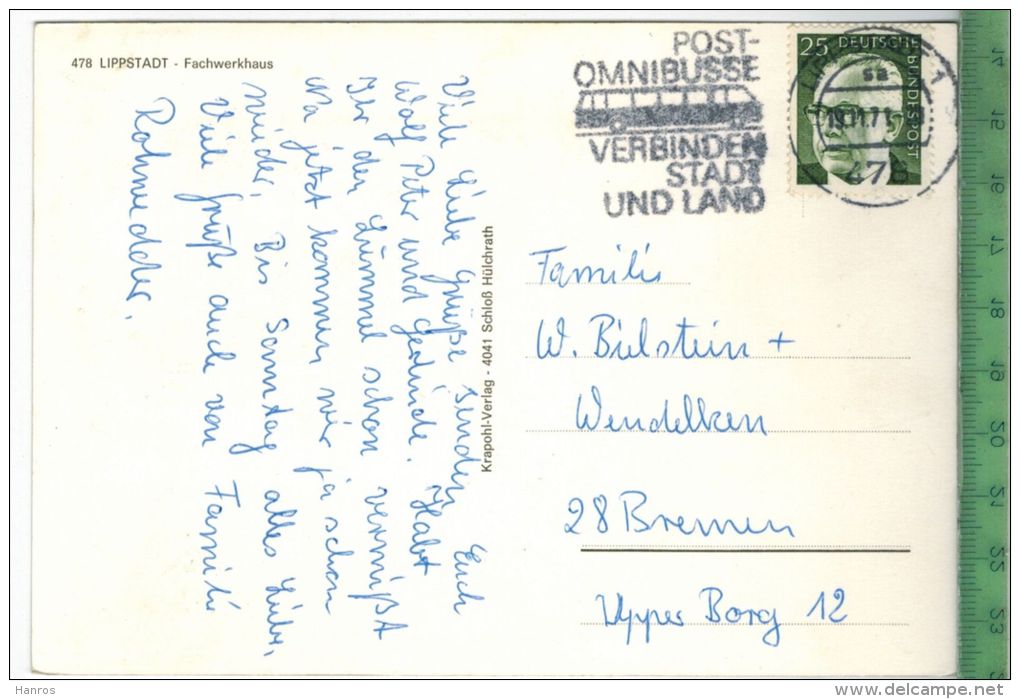 478 LIPPSTADT - Fachwerkhaus
Viele liebe Grüße senden Euch
Wolf Peter und Gerlinde. Habt
Ihr den Lümmel schon vermißt
Na jetzt kommen wir ja schon
wieder. Bis Sonntag alles Liebe,
Viele Grüße auch von Familie
Rohmedder.
Krapohl-Verlag - 4041 Schloß Hülchrath
POST-
OMNIBUSSE
VERBINDEN
STADT
UND LAND
25 DEUTSCHE
BUNDESPOST
LIPPSTADT 1
sa
19.11.71
478
Familie
W. Bielstein +
Wendelken
28 Bremen
Upper Borg 12
14
15
16
17
18
19
20
21
22
23
Hanros
www.delcampe.net